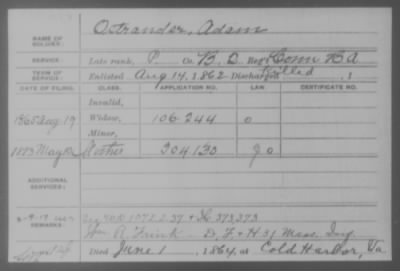 NAME OF SOLDIER: Ostrander, Adam
SERVICE: Late rank, P. Co. B. D. Reg't Conn H A
TERM OF SERVICE: Enlisted Aug 14, 1862 Discharged Killed, 1
DATE OF FILING. CLASS. APPLICATION NO. LAW CERTIFICATE NO.
Invalid,
1865 Aug 19 Widow, 106 244 o
Minor,
1883 May Mother 304,130 g o
ADDITIONAL SERVICES:
REMARKS: 373,273
Wm. R. Frink D. F + H 31 Mass. Inf.
Died June 1, 1864, at Cold Harbor, Va.